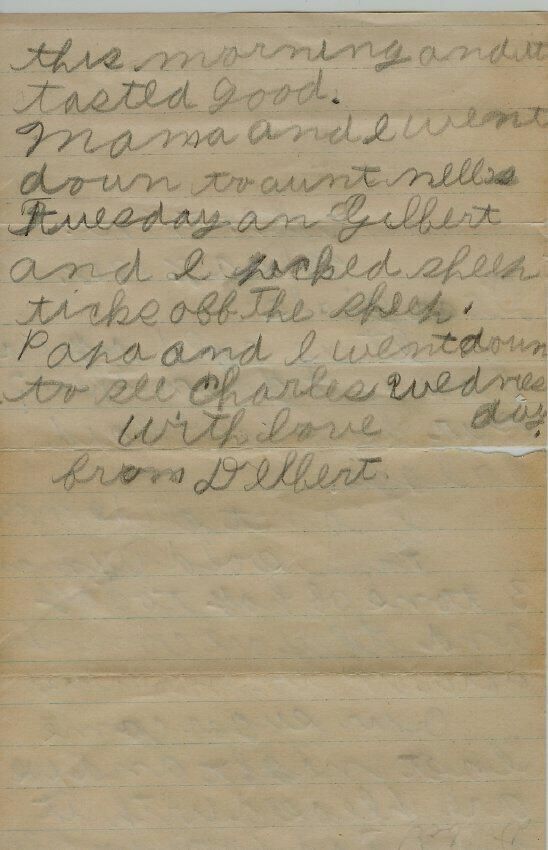 this morning and it
tasted good.
Mama and I went
down to aunt nells
Tuesday an Gilbert
and I picked sheep
ticks off The sheep.
Papa and I went down
to see Charles Wednes
day.
With love
from Delbert.